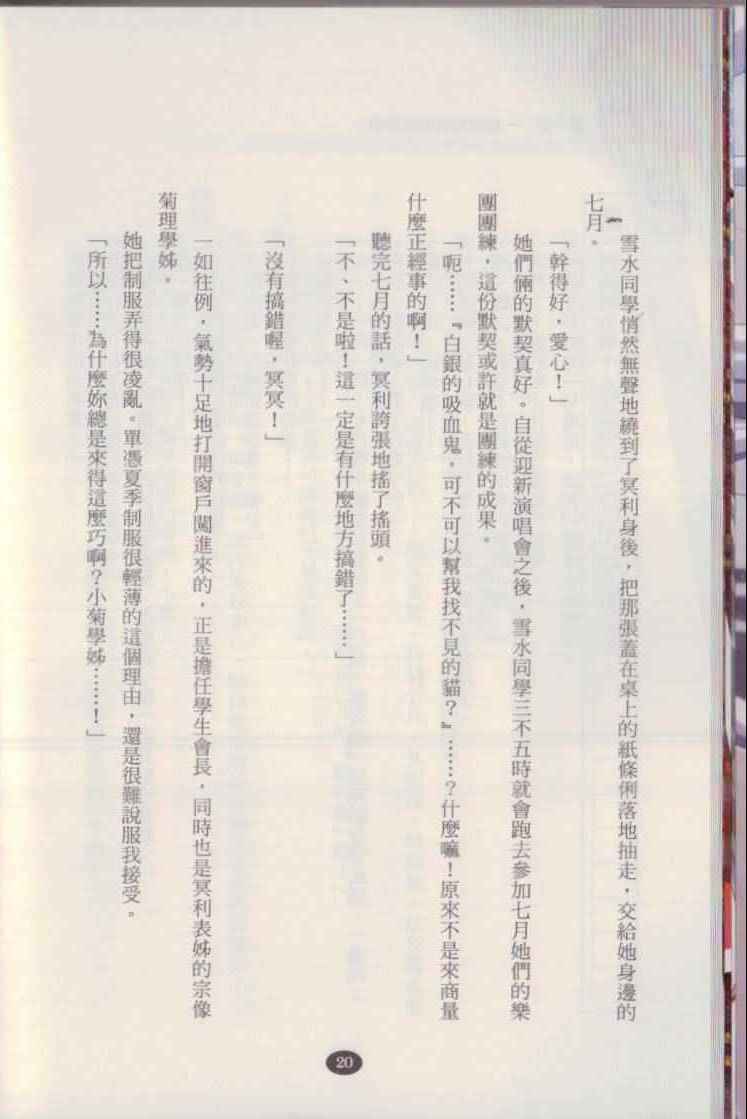 雪水同學悄然無聲地繞到了冥利身後，把那張蓋在桌上的紙條俐落地抽走，交給她身邊的
七月。
「幹得好，愛心！」
她們倆的默契真好。自從迎新演唱會之後，雪水同學三不五時就會跑去參加七月她們的樂
團團練，這份默契或許就是團練的成果。
「呃……『白銀的吸血鬼，可不可以幫我找不見的貓？』……？什麼嘛！原來不是來商量
什麼正經事的啊！」
聽完七月的話，冥利誇張地搖了搖頭。
「不、不是啦！這一定是有什麼地方搞錯了……」
「沒有搞錯喔，冥冥！」
一如往例，氣勢十足地打開窗戶闖進來的，正是擔任學生會長，同時也是冥利表姊的宗像
菊理學姊。
她把制服弄得很凌亂。單憑夏季制服很輕薄的這個理由，還是很難說服我接受。
「所以……為什麼妳總是來得這麼巧啊？小菊學姊……！」
20